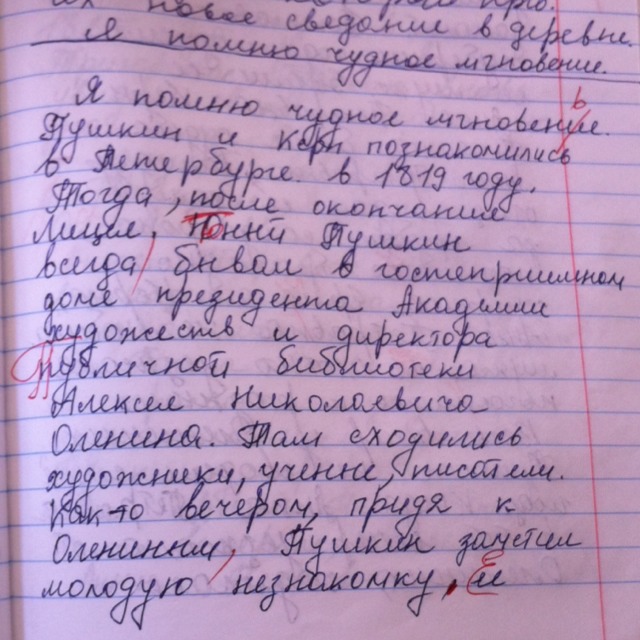 новое сведание в деревне.
Я помню чудное мгновение.
Я помню чудное мгновение.
Пушкин и Керн познакомились
в Петербурге в 1819 году.
Тогда, после окончания
Лицея, юный Пушкин
всегда бывал в гостеприимном
доме президента Академии
художеств и директора
Публичной библиотеки
Алексея Николаевича
Оленина. Там сходились
художники, учение, писатели.
Как-то вечером, придя к
Олениным, Пушкин заметил
молодую незнакомку, Её